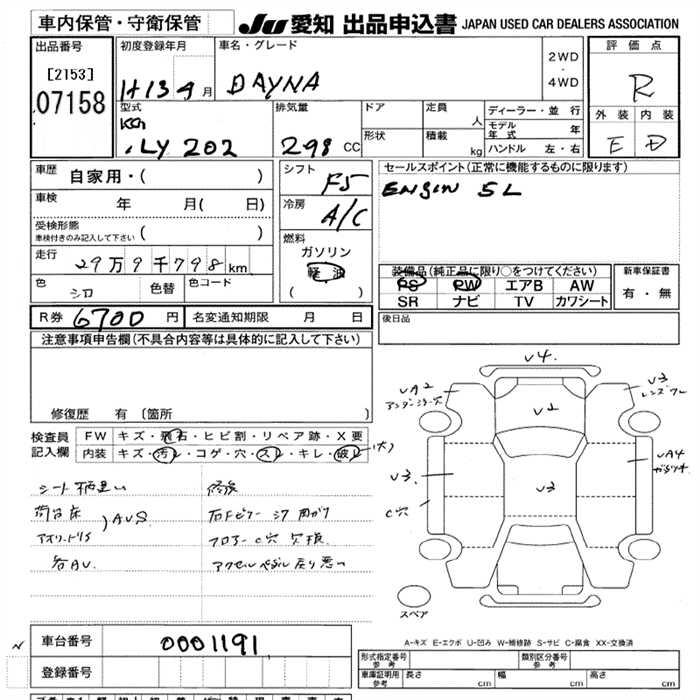 車内保管・守衛保管
JU 愛知 出品申込書 JAPAN USED CAR DEALERS ASSOCIATION
出品番号
[2153]
07158
初度登録年月
H13 9月
車名・グレード
DAYNA
2WD
・
4WD
評価点
R
外装 内装
E D
型式
KG
LY 202
排気量
298 CC
ドア
形状
定員 人
積載 kg
ディーラー・並 行
モデル年式 年
ハンドル 左・右
車歴
自家用・( )
車検 年 月( 日)
受検形態
車検付きのみ記入して下さい ( )
走行
29万9千798km
色
シロ
色替
色コード
シフト
F5
冷房
A/C
燃料
ガソリン
軽 油
( )
セールスポイント(正常に機能するものに限ります)
ENGIN 5L
装備品(純正品に限り○をつけてください)
PS PW エアB AW
SR ナビ TV カワシート
新車保証書
有・無
R券 6700 円
名変通知期限 月 日
後日品
注意事項申告欄(不具合内容等は具体的に記入して下さい)
修復歴 有 〔箇所 〕
検査員
記入欄
FW キズ・飛石・ヒビ割・リペア跡・X要
内装 キズ・汚れ・コゲ・穴・スレ・キレ・破レ(大)
荷台床
AUS
各AU.
修後
フロアーC穴 欠損
アクセルペダル戻り悪い
V4.
UA2
V2
V3
V3.
V3
UA4
C穴
スペア
A-キズ E-エクボ U-凹み W-補修跡 S-サビ C-腐食 XX-交換済
車台番号 0001191
登録番号
形式指定番号
参考
類別区分番号
参考
車庫証明用
参考
長さ cm 幅 cm 高さ cm